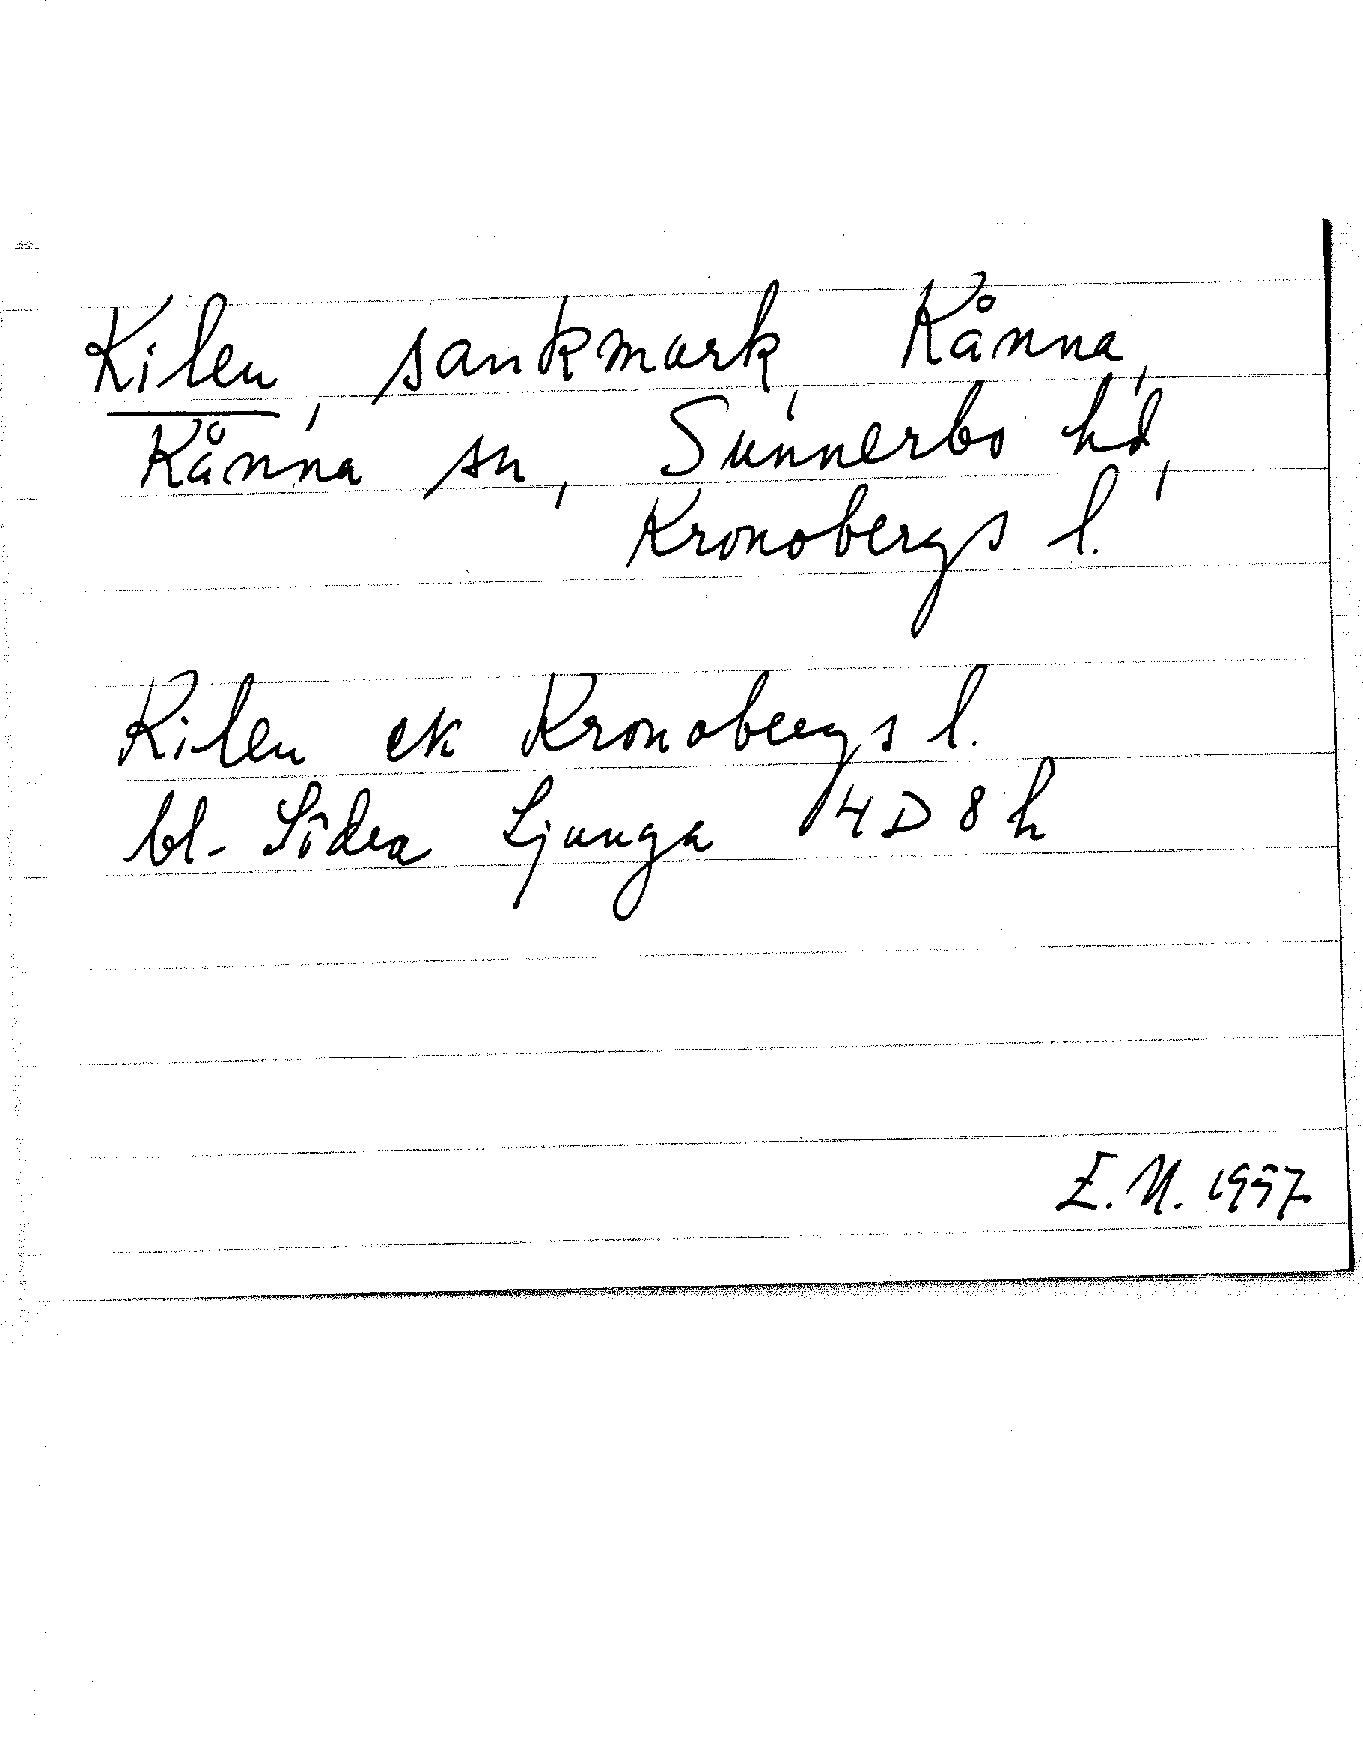 Kilen, sankmark, Kånna,
Kånna sn, Sunnerbo hd,
Kronobergs l.
Kilen ek Kronobergs l.
bl. Södra Ljunga 4D 8h
E.N. 1957